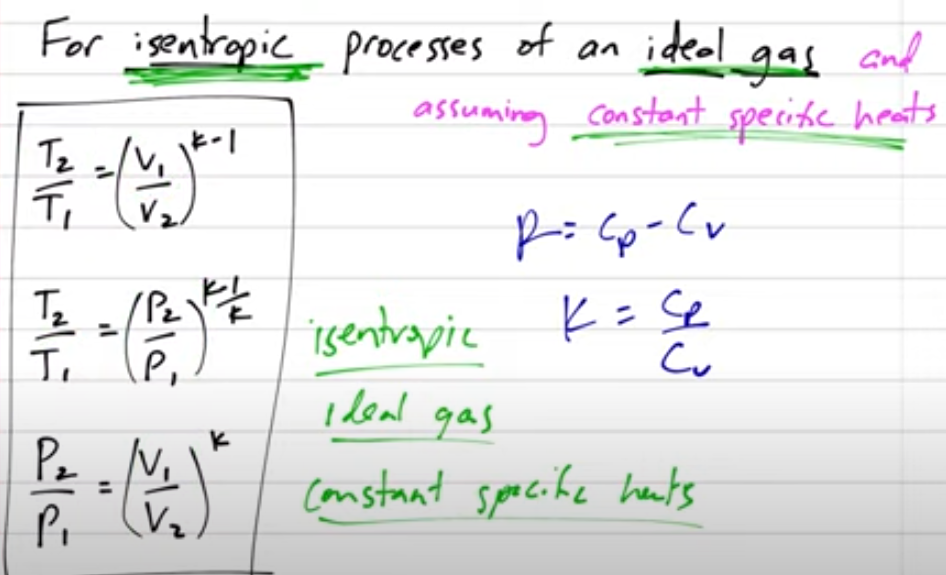 For isentropic processes of an ideal gas and
assuming constant specific heats
T₂/T₁ = (V₁/V₂)^(k-1)
R = Cp - Cv
T₂/T₁ = (P₂/P₁)^(k-1/k)
K = Cp/Cv
isentropic
ideal gas
P₂/P₁ = (V₁/V₂)^k
constant specific heats